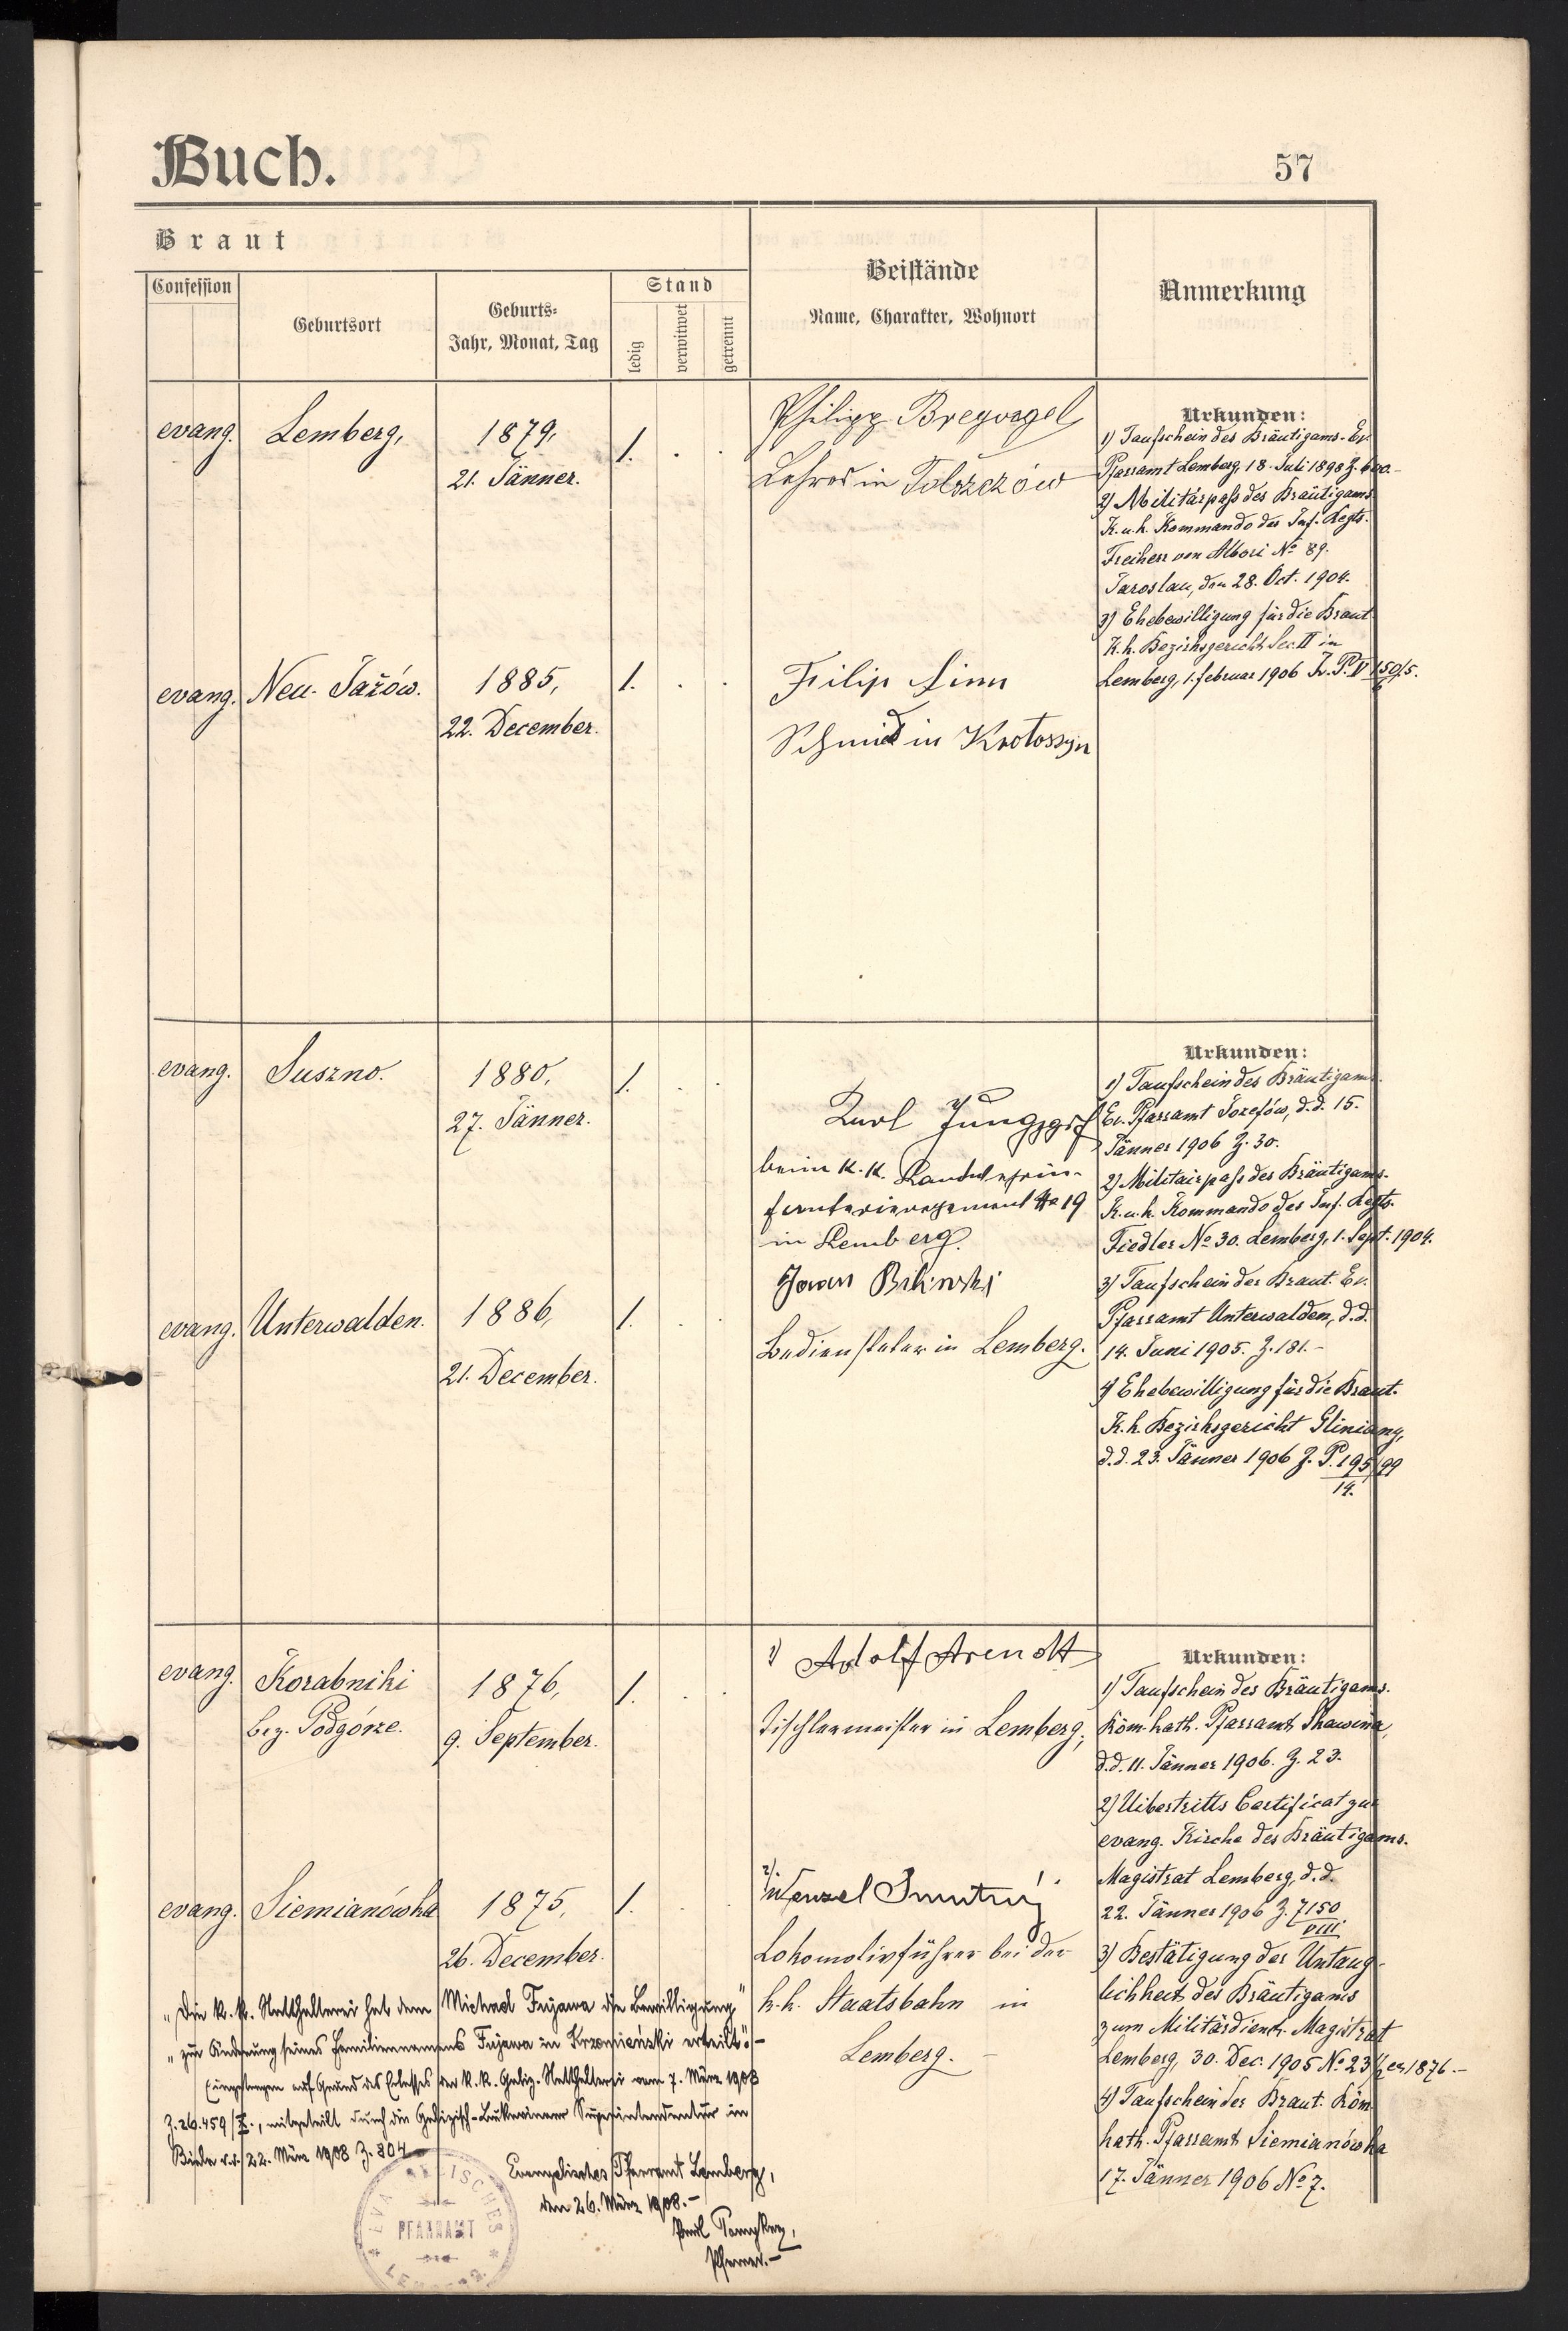 Buch.
57
Braut
Confession
Geburtsort
Geburts-
Jahr, Monat, Tag
Stand
ledig
verwitwet
getrennt
Beistände
Name, Charakter, Wohnort
Anmerkung
evang.
Lemberg,
1879,
21. Jänner.
1.
Philipp Breyvogel
Lehrer in Tolszczów
Urkunden:
1) Taufschein des Bräutigams. Ev.
Pfarramt Lemberg, 18. Juli 1898 Z. 600.-
2) Militärpaß des Bräutigams
K. u. k. Kommando des Inf. Regts.
Freiherr von Albori No 89.
Jaroslau, den 28. Oct. 1904.
3) Ehebewilligung für die Braut
K. k. Bezirksgericht Sec. II in
Lemberg, 1. Februar 1906
evang.
Neu-Jażów.
1885,
22. December.
1.
Filip Linn
Schmid in Krotoszyn
evang.
Suszno.
1880,
27. Jänner.
1.
Karl
beim K. K. Landwehrin-
fanterieregiment No 19
in Lemberg.
Urkunden:
1) Taufschein des Bräutigams.
Ev. Pfarramt Józefów, d.d. 15.
Jänner 1906 Z. 30.
2) Militairpaß des Bräutigams.
K. u. k. Kommando des Inf. Regts.
Fiedler No 30. Lemberg, 1. Sept. 1904.
3) Taufschein der Braut. Ev.
Pfarramt Unterwalden, d.d.
14. Juni 1905. Z. 181.-
4) Ehebewilligung für die Braut.
K. k. Bezirksgericht Gliniany,
d.d. 23. Jänner 1906 Z. P. 195/99
14.
evang.
Unterwalden.
1886,
21. December.
1.
Bediensteter in Lemberg.
evang.
Korabniki
bez. Podgórze.
1876,
9. September.
1.
1) Adolf Arendt
Tischlermeister in Lemberg,
Urkunden:
1) Taufschein des Bräutigams.
Röm. kath. Pfarramt Skawina,
d.d. 11. Jänner 1906. Z. 23.
2) Uibertritts Certificat zur
evang. Kirche des Bräutigams.
Magistrat Lemberg, d.d.
22. Jänner 1906 Z. 7150
VIII.
3) Bestätigung der Untaug-
lichkeit des Bräutigams
zum Militärdienst. Magistrat
Lemberg, 30. Dec. 1905 No 23/ex 1876.-
4) Taufschein der Braut. Röm.
kath. Pfarramt Siemianówka
17. Jänner 1906 No 7.
evang.
Siemianówka
1875,
26. December.
1.
2) Wenzel
Lokomotivführer bei der
k. k. Staatsbahn in
Lemberg. -
"Die k. k. Statthalterei hat dem Michael Fujawa die Bewilligung"
"zur Änderung seines Familiennamens Fujawa in Krzemieński erteilt".-
Eingetragen auf Grund des Erlasses der k. k. Galiz. Statthalterei vom 7. März 1908
Z. 26.459/X., mitgeteilt durch die Galizisch-Bukowinaer Superintendentur in
Biala d.d. 22. März 1908 Z. 804
Evangelisches Pfarramt Lemberg,
den 26. März 1908.-
Pfarrer.-
EVANGELISCHES
PFARRAMT
LEMBERG